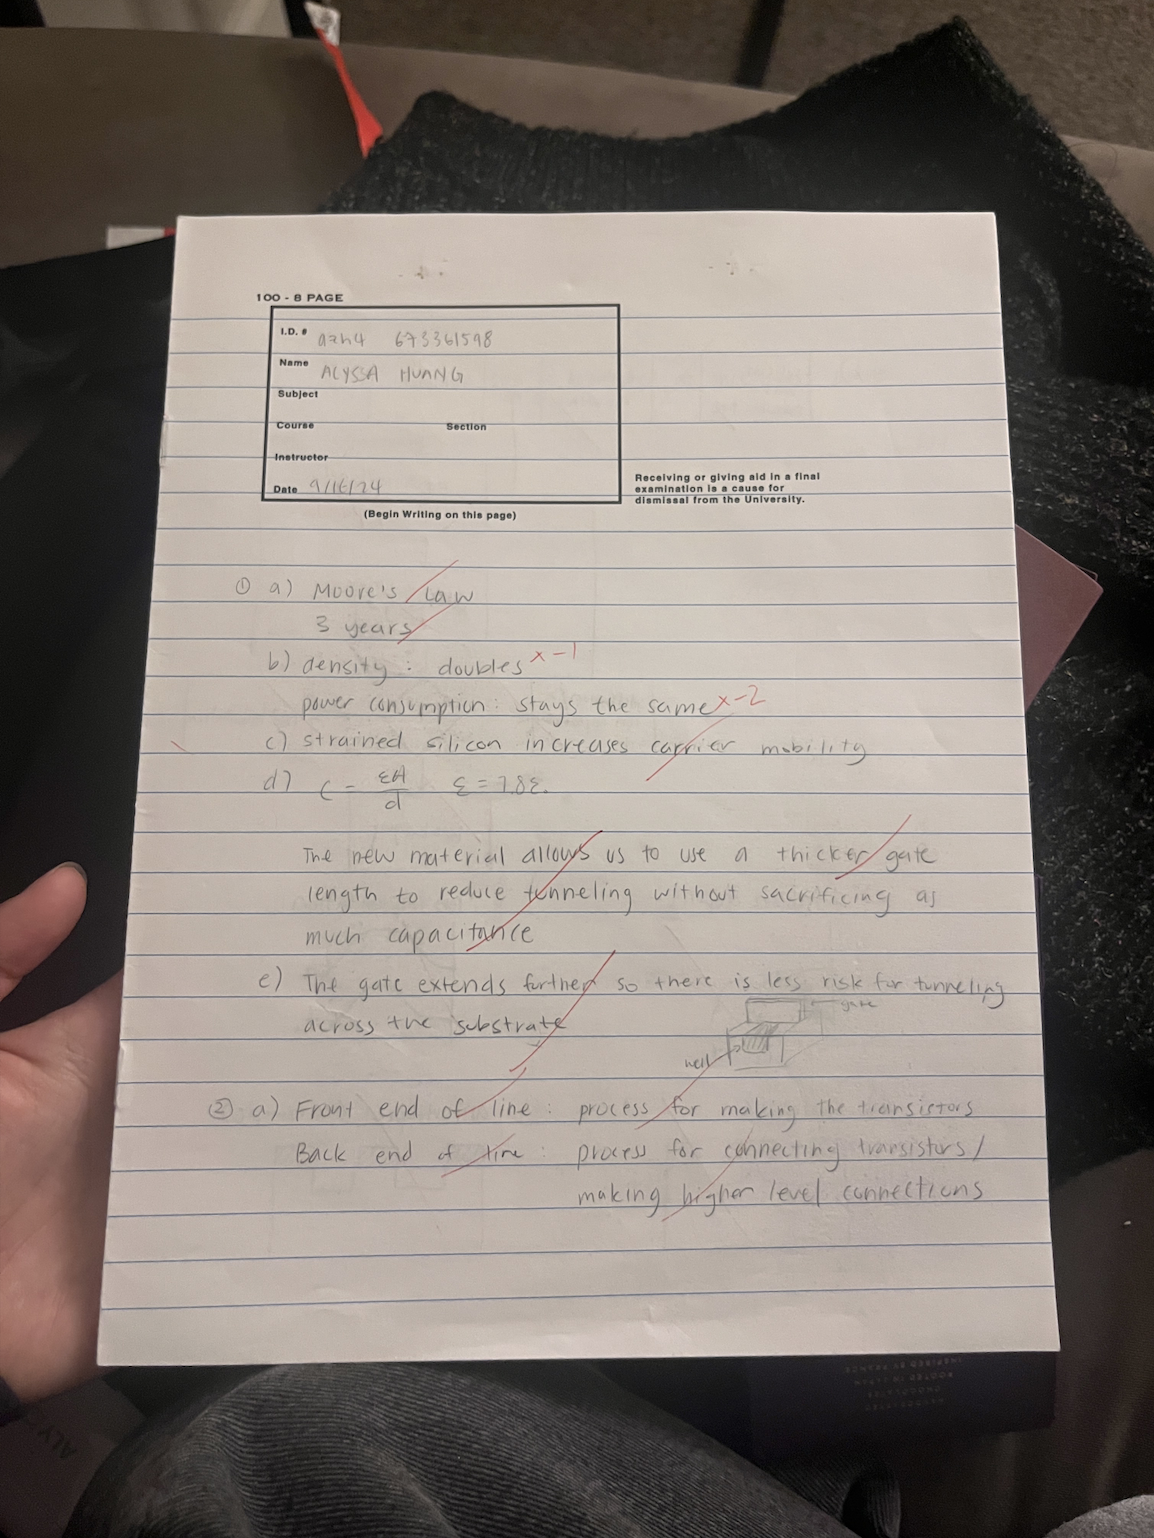 100 - 8 PAGE
I.D. # azh4 673361598
Name ALYSSA HUANG
Subject
Course Section
Instructor
Date 9/16/24
Receiving or giving aid in a final
examination is a cause for
dismissal from the University.
(Begin Writing on this page)
① a) Moore's Law
3 years
b) density : doubles x -1
power consumption: stays the same x-2
c) strained silicon increases carrier mobility
d) C = εA/d ε = 7.8ε.
The new material allows us to use a thicker gate
length to reduce tunneling without sacrificing as
much capacitance
e) The gate extends further so there is less risk for tunneling
across the substrate
gate
well
② a) Front end of line : process for making the transistors
Back end of line : process for connecting transistors /
making higher level connections